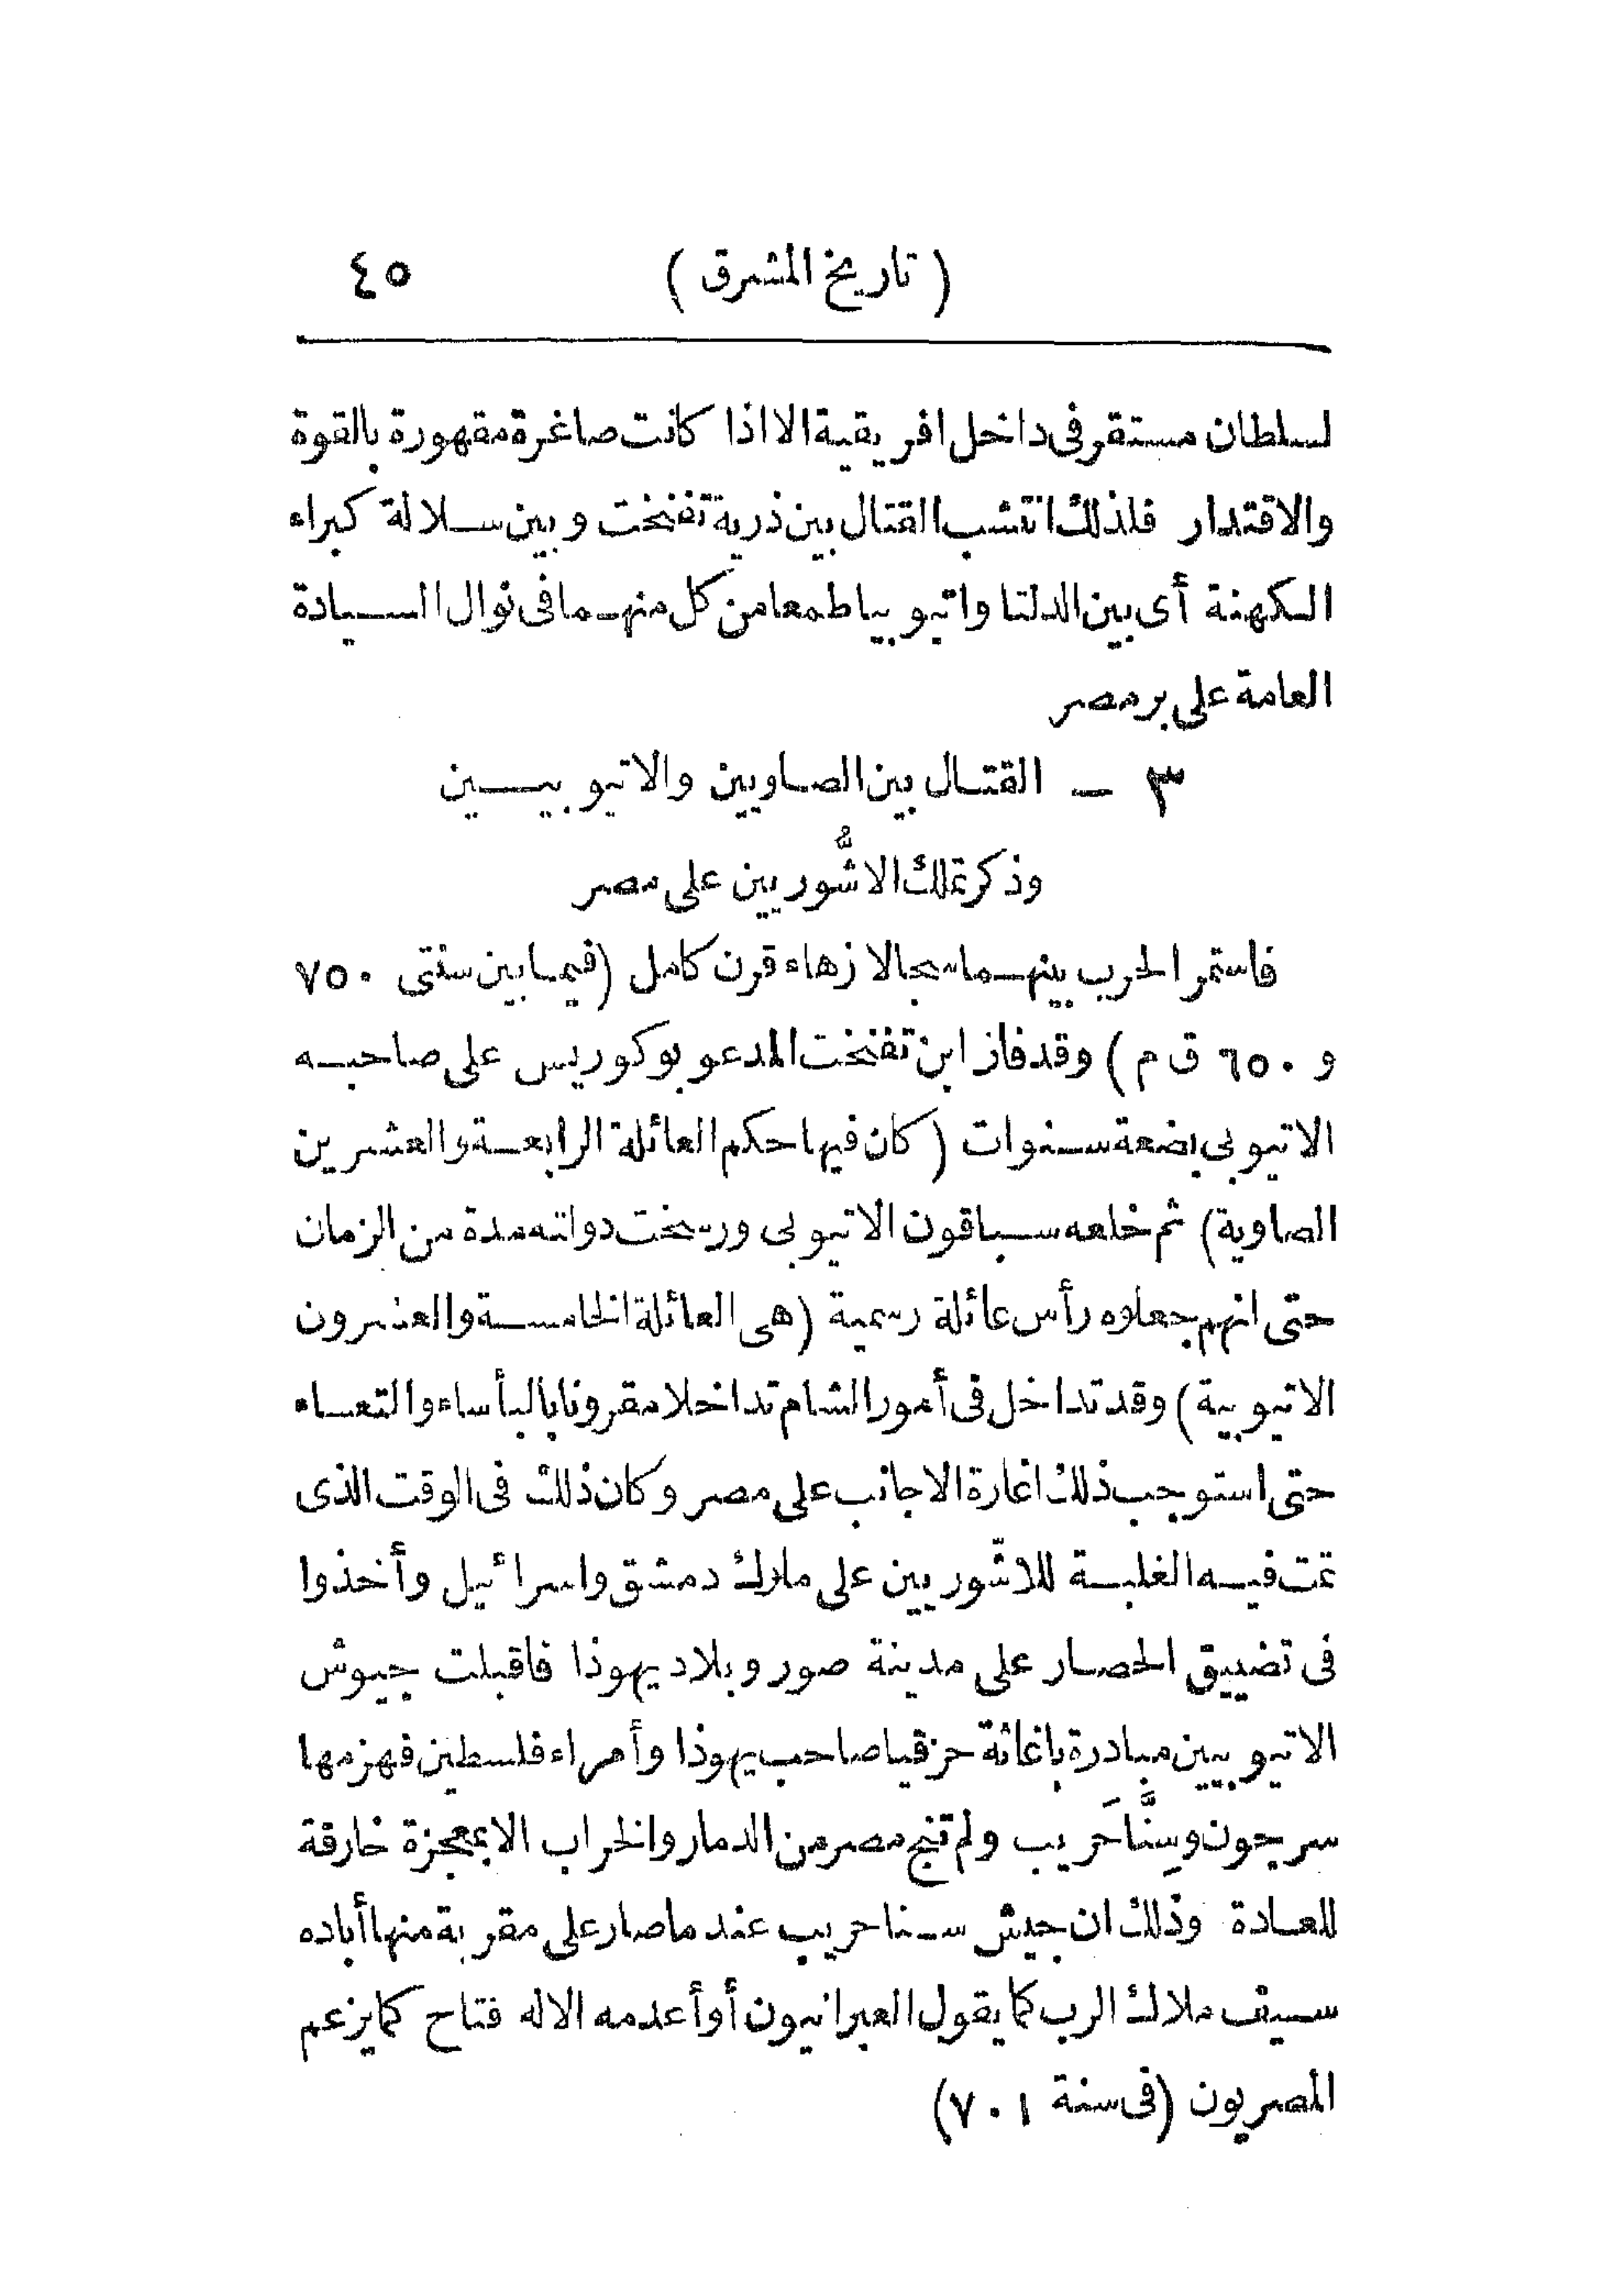 (تاريخ المشرق) ٤٥
لسلطان مستقر فى داخل افريقية الا اذا كانت صاغرة مقهورة بالقوة
والاقتدار فلذلك انتشب القتال بين ذرية تفنخت وبين سلالة كبراء
الكهنة أى بين الدلتا واتيوبيا طمعا من كل منهما فى نوال السيادة
العامة على بر مصر
٣ - القتال بين الصاويين والاتيوبيين
وذكر تملك الاشُّوريين على مصر
فاستمر الحرب بينهما سجالا زهاء قرن كامل (فيما بين سنتى ٧٥٠
و ٦٥٠ ق م) وقد فاز ابن تفنخت المدعو بوكوريس على صاحبه
الاتيوبى بضعة سنوات (كان فيها حكم العائلة الرابعة والعشرين
الصاوية) ثم خلعه سباقون الاتيوبى ورسخت دولته مدة من الزمان
حتى انهم جعلوه رأس عائلة رسمية (هى العائلة الخامسة والعشرون
الاتيوبية) وقد تداخل فى أمور الشام تداخلا مقرونا بالبأساء والتعساء
حتى استوجب ذلك اغارة الاجانب على مصر وكان ذلك فى الوقت الذى
تمت فيه الغلبة للاشّوريين على ملوك دمشق واسرائيل وأخذوا
فى تضييق الحصار على مدينة صور وبلاد يهوذا فاقبلت جيوش
الاتيوبيين مبادرة باغاثة حزقيا صاحب يهوذا وأمراء فلسطين فهزمها
سرجون وسِنَّاحَريب ولم تنج مصر من الدمار والخراب الا بمعجزة خارقة
للعادة وذلك ان جيش سناحريب عند ما صار على مقربة منها أباده
سيف ملاك الرب كما يقول العبرانيون أو أعدمه الاله فتاح كما يزعم
المصريون (فى سنة ٧٠١)